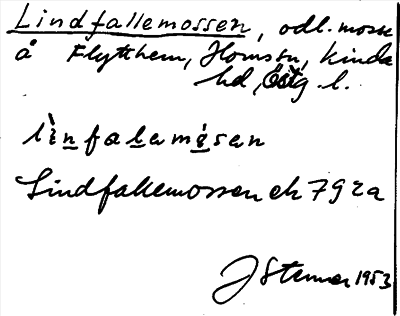 Lindfallemossen, odl. mosse
å Flytthem, Hornstn, Kinda
hd, Östg. l.
lìnfalamósan
Lindfallemossen ek 79 2a
J Stenner 1953